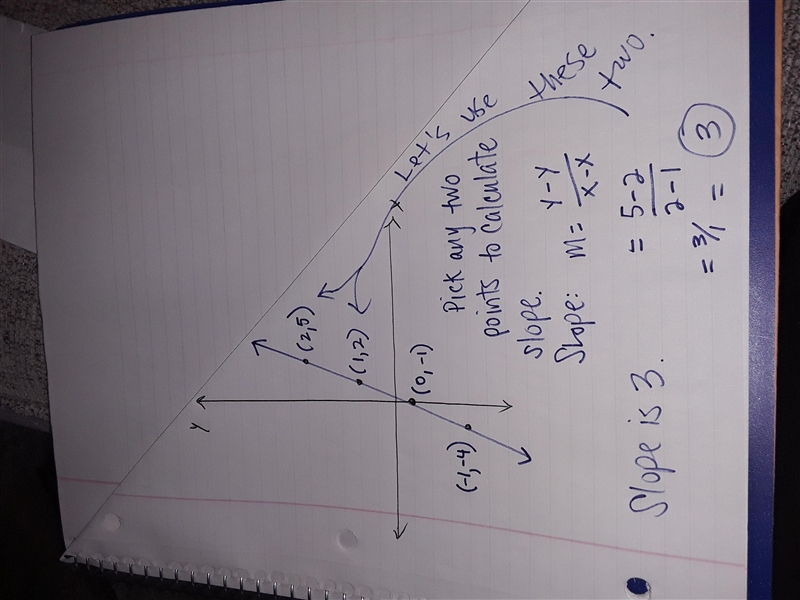 y
(2,5)
(1,2)
x
(0,-1)
(-1,-4)
Let's use these
two.
Pick any two
points to calculate
slope.
Slope: m = y-y/x-x
= 5-2/2-1
= 3/1 = 3
Slope is 3.